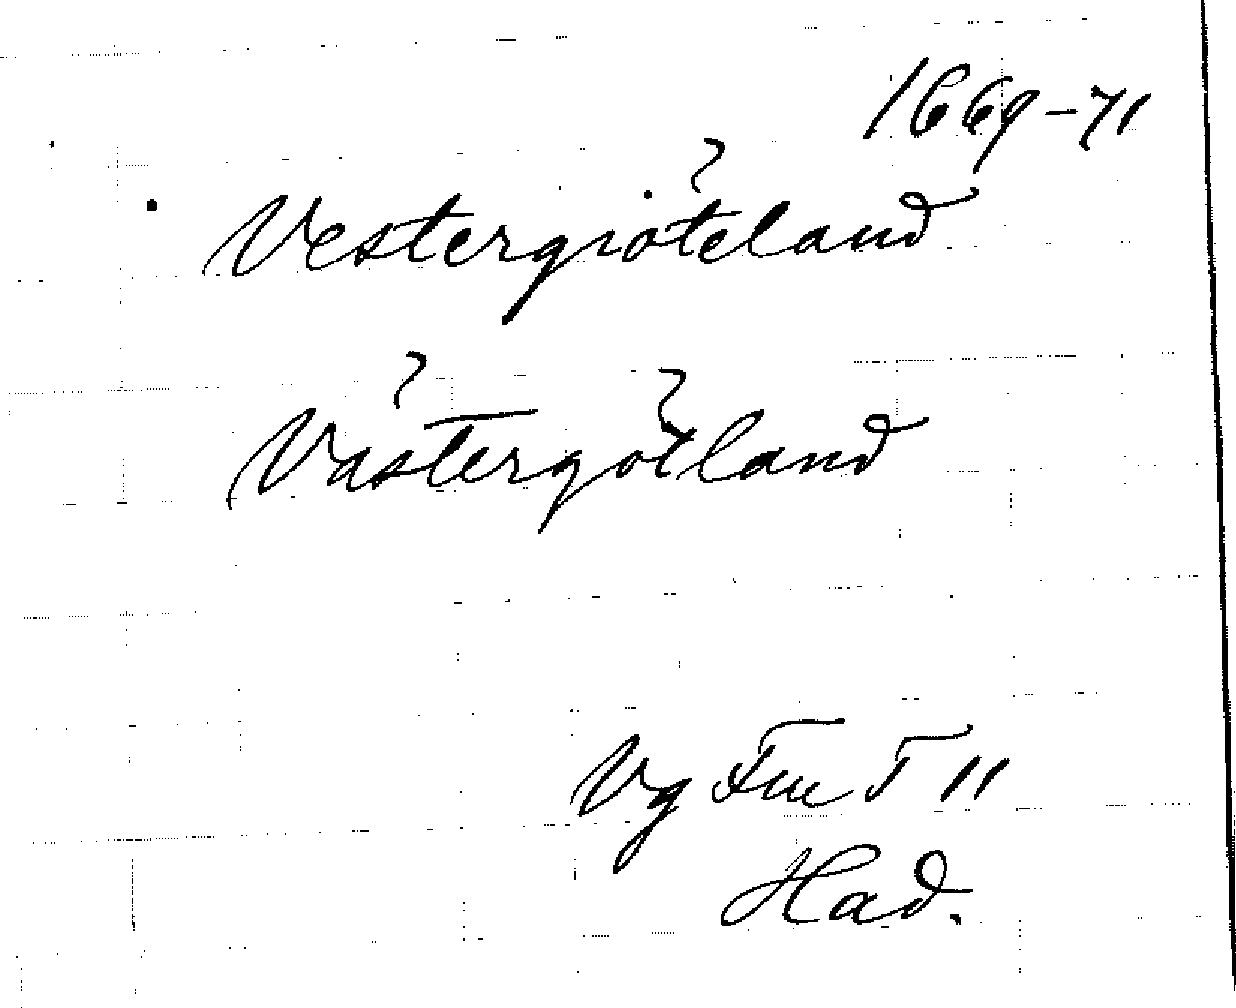 1669-71
Vestergiöteland
Västergötland
Vg Fu T 11
Had.